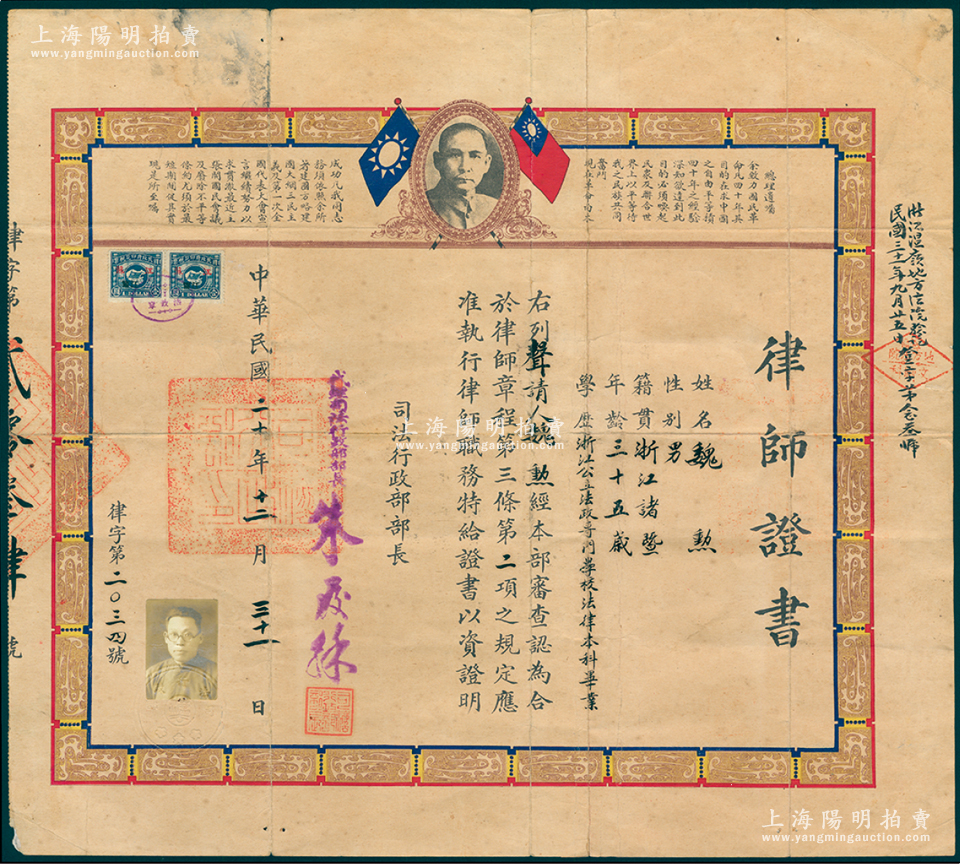 上海陽明拍賣
www.yangmingauction.com
上海陽明拍賣
www.yangmingauction.com
民國三十一年九月廿五日
總理遺囑
余致力國民革
命凡四十年其
目的在求中國
之自由平等積
四十年之經驗
深知欲達到此
目的必須喚起
民眾及聯合世
界上以平等待
我之民族共同
奮鬥
現在革命尚未
成功凡我同志
務須依照余所
著建國方略建
國大綱三民主
義及第一次全
國代表大會宣
言繼續努力以
求貫徹最近主
張開國民會議
及廢除不平等
條約尤須於最
短期間促其實
現是所至囑
律師證書
姓名魏勲
性别男
籍貫浙江諸暨
年齡三十五歲
學歷浙江公立法政專門學校法律本科畢業
右列聲請人魏勲經本部審查認為合
於律師章程第三條第二項之規定應
准執行律師職務特給證書以資證明
司法行政部部長
中華民國二十年十二月三十一日
1 DOLLAR
1 DOLLAR
律字第二〇三四號
律字第
號
上海陽明拍賣
www.yangmingauction.com